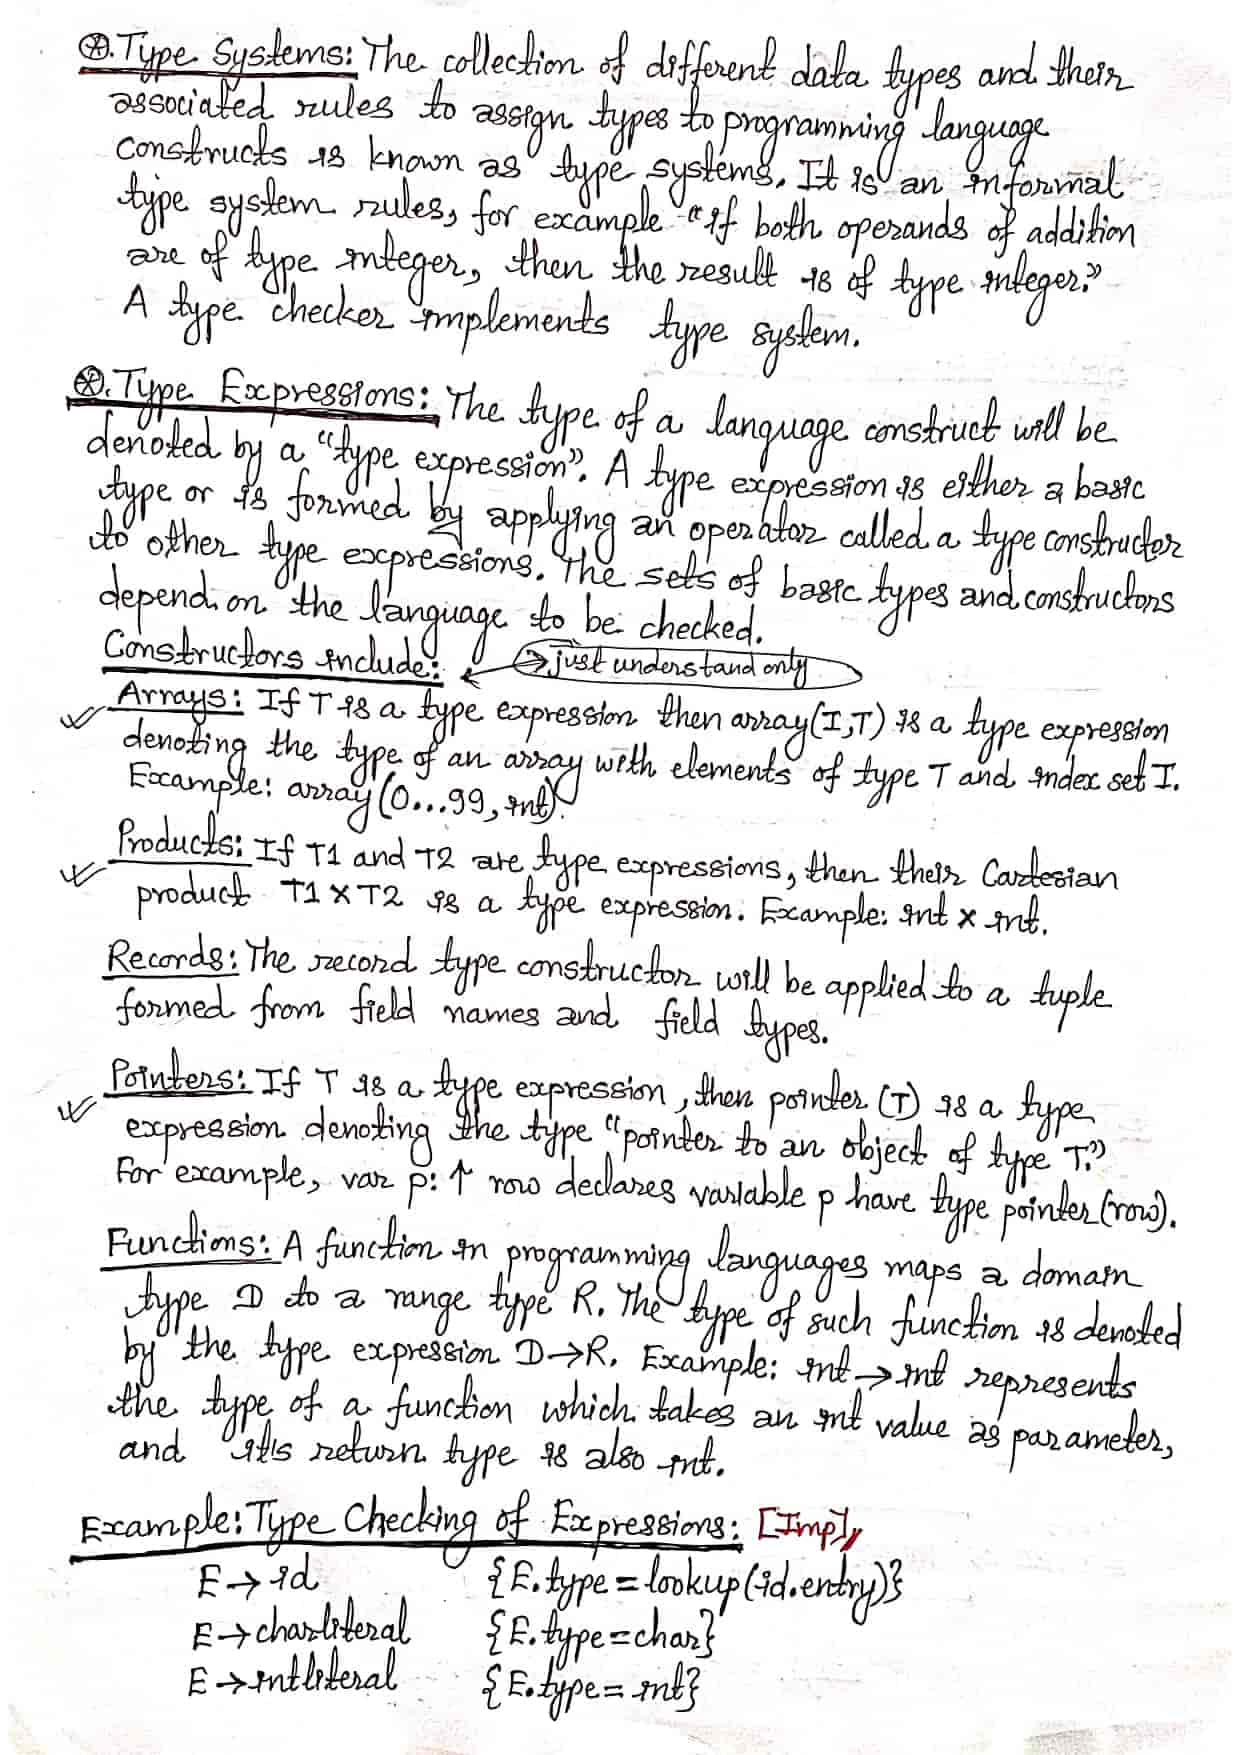 ⊛. Type Systems: The collection of different data types and their
associated rules to assign types to programming language
constructs is known as type systems. It is an informal
type system rules, for example "if both operands of addition
are of type integer, then the result is of type integer."
A type checker implements type system.
⊛. Type Expressions: The type of a language construct will be
denoted by a "type expression". A type expression is either a basic
type or is formed by applying an operator called a type constructor
to other type expressions. The sets of basic types and constructors
depend on the language to be checked.
Constructors include: → just understand only
Arrays: If T is a type expression then array(I,T) is a type expression
denoting the type of an array with elements of type T and index set I.
Example: array(0...99, int).
Products: If T1 and T2 are type expressions, then their Cartesian
product T1 × T2 is a type expression. Example: int × int.
Records: The record type constructor will be applied to a tuple
formed from field names and field types.
Pointers: If T is a type expression, then pointer (T) is a type
expression denoting the type "pointer to an object of type T."
For example, var p: ↑ row declares variable p have type pointer(row).
Functions: A function in programming languages maps a domain
type D to a range type R. The type of such function is denoted
by the type expression D→R. Example: int→int represents
the type of a function which takes an int value as parameter,
and its return type is also int.
Example: Type Checking of Expressions: [Imp]
E→id {E.type = lookup(id.entry)}
E→charliteral {E.type=char}
E→intliteral {E.type= int}